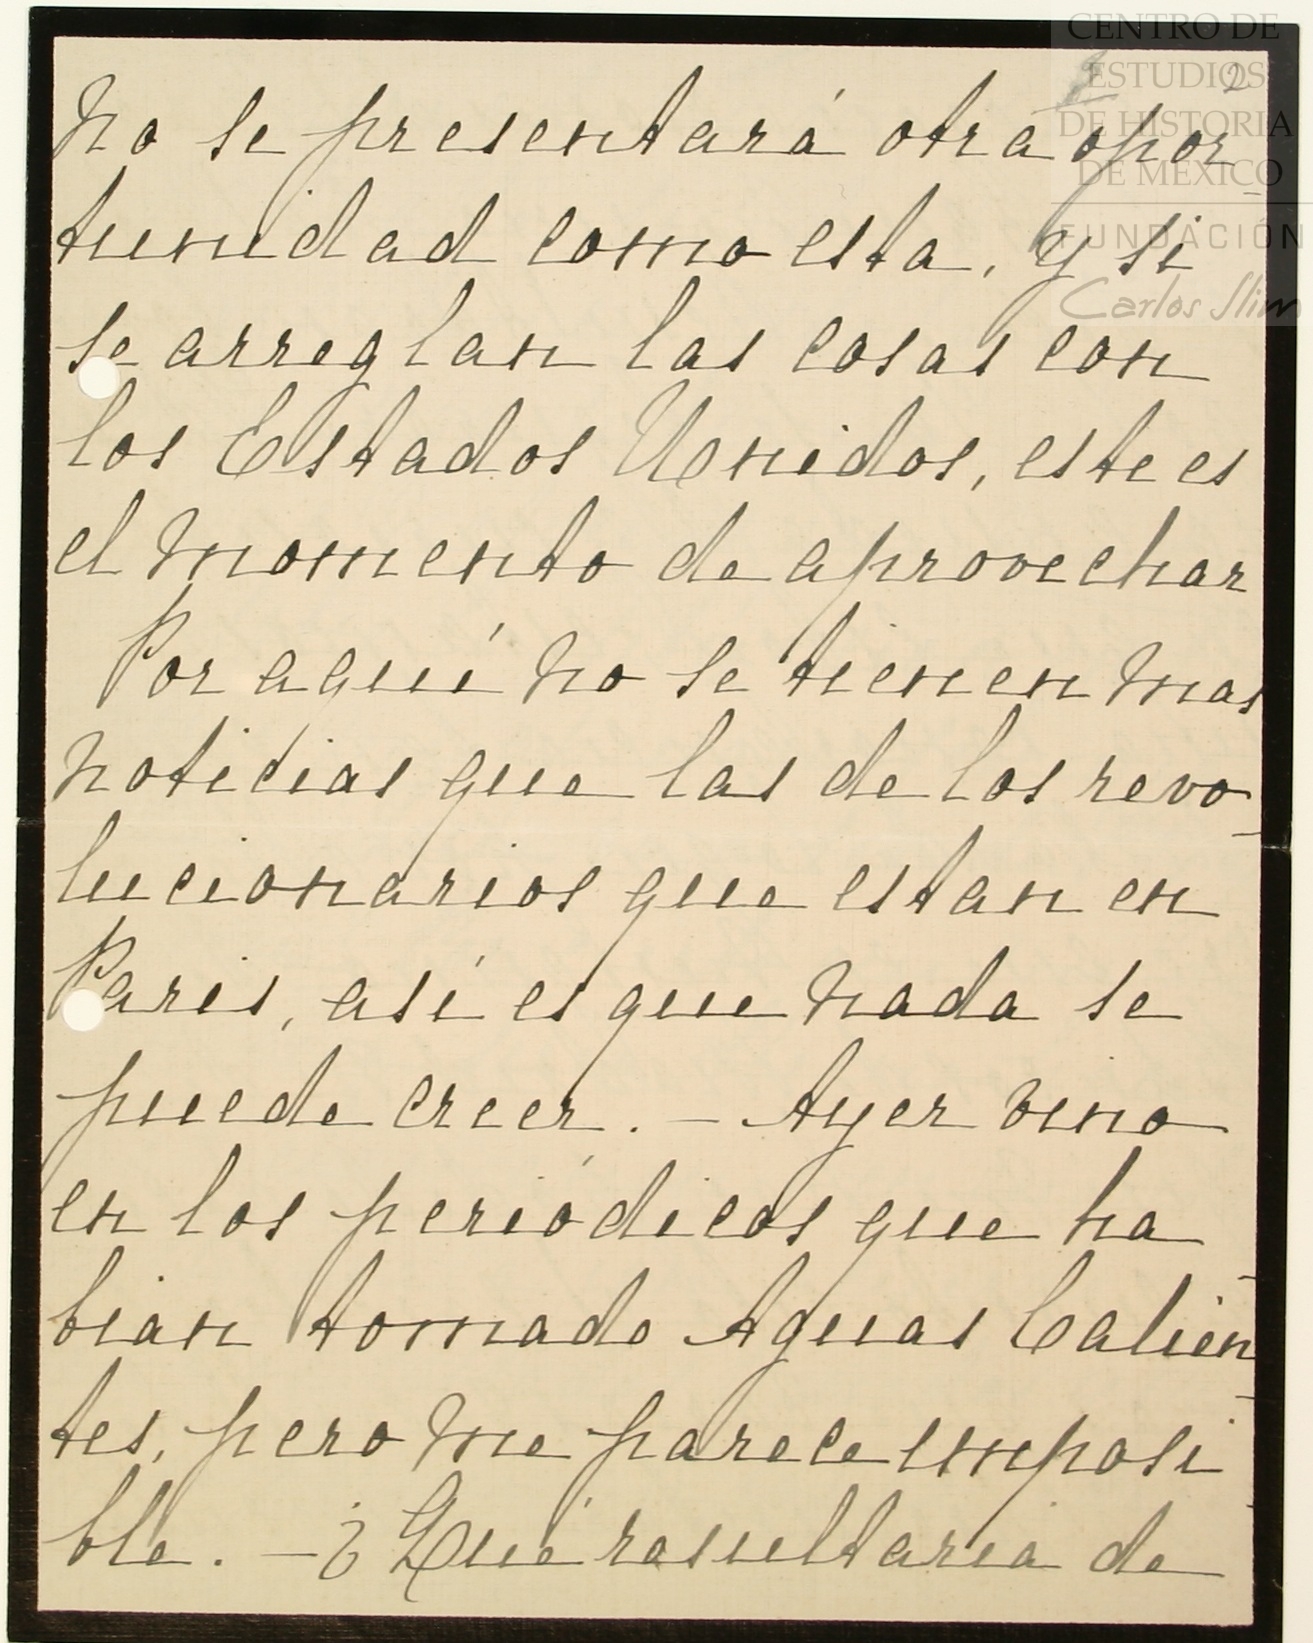 CENTRO DE
ESTUDIOS
DE HISTORIA
DE MEXICO
FUNDACIÓN
Carlos Slim
2
no se presentará otra opor
tunidad como esta, y si
se arreglan las cosas con
los Estados Unidos, este es
el momento de aprovechar
Por aquí no se tienen mas
noticias que las de los revo-
lucionarios que estan en
Paris, así es que nada se
puede creer. — Ayer vino
en los periódicos que ha-
bian tomado Aguas Calien-
tes, pero me parece imposi-
ble. — ¿Qué resultaria de